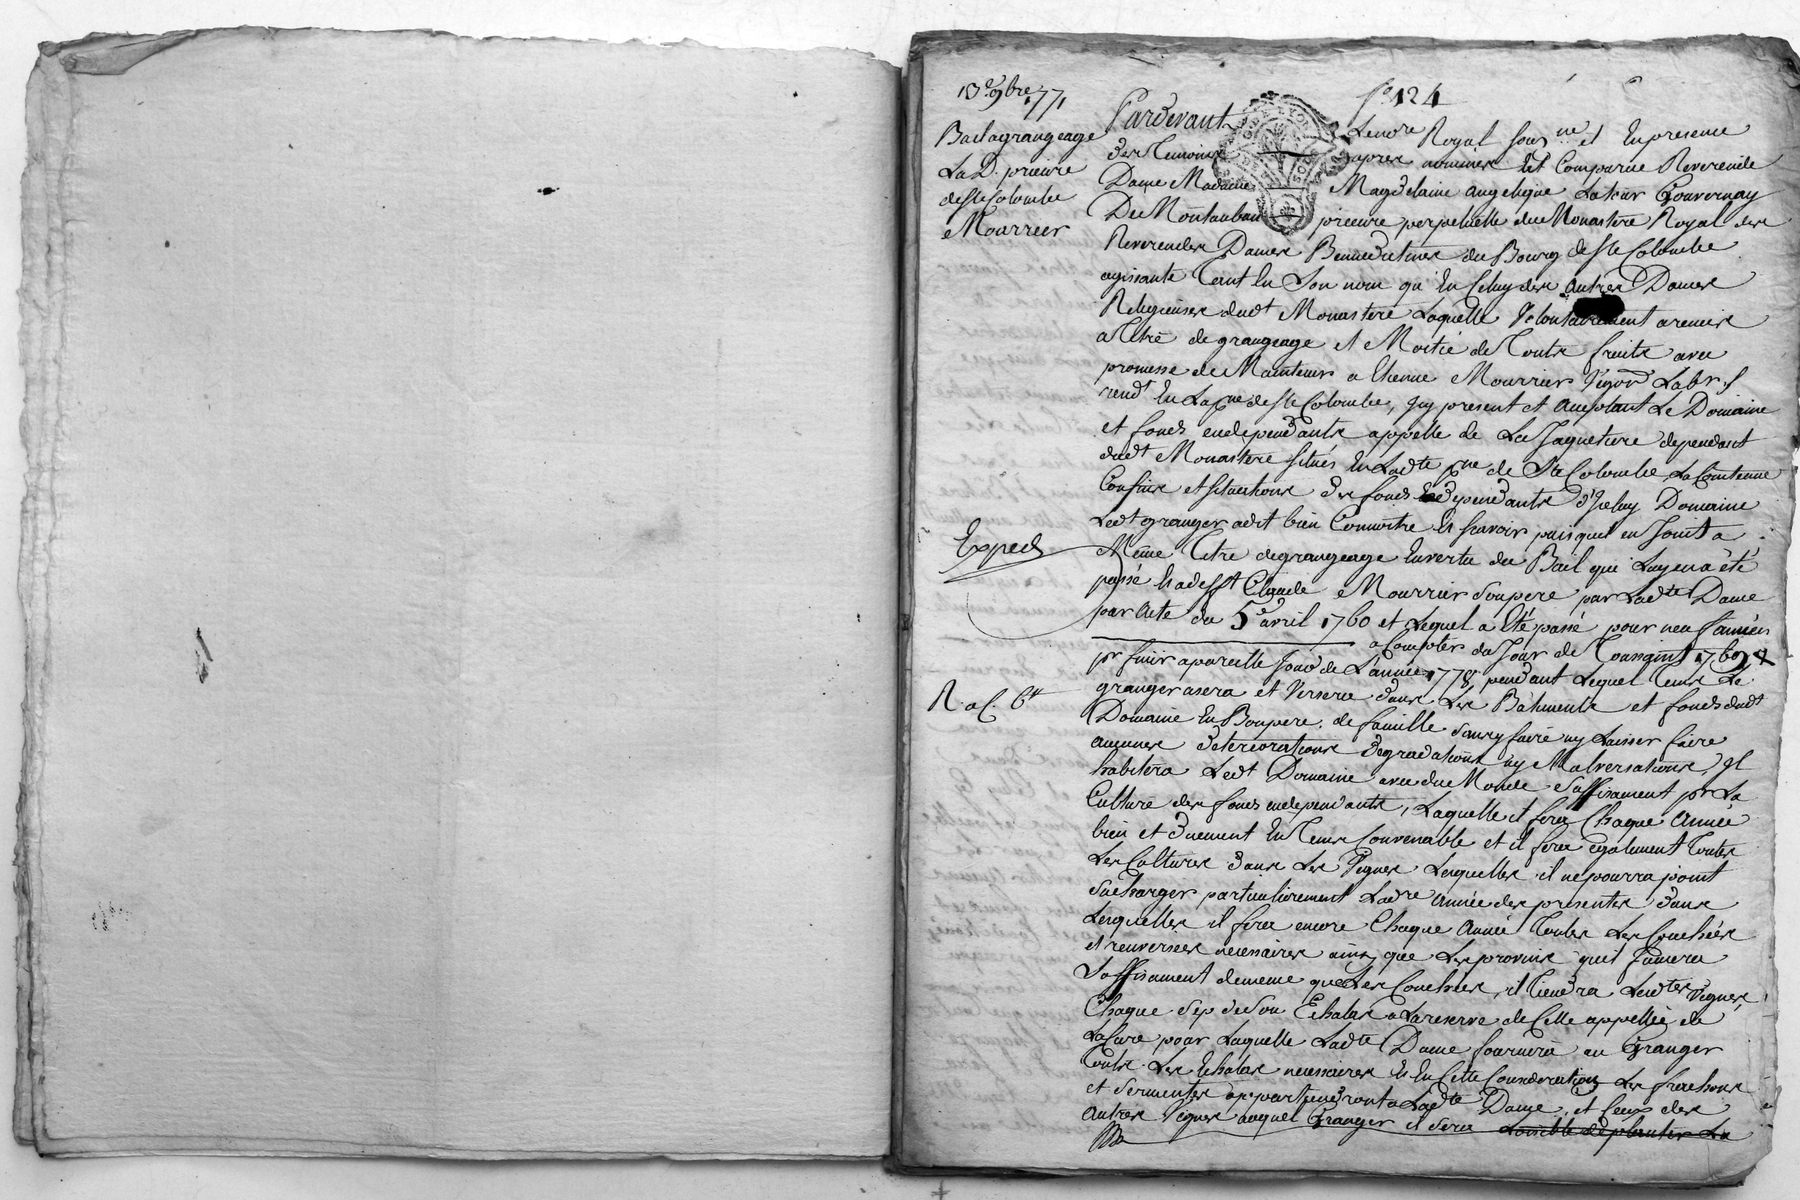 13e 9bre 1771
Bail a grangeage
La D. prieure
de Ste Colombe
a Mourrier
Exped
R. a C. 6tt
fo 124
Pardevant Le nore Royal souss.né et En presence
des Temoins apres nommés Est Comparue Reverende
Dame Madame Magdelaine angelique Latour Gouvernay
De Montauban prieure perpetuelle du Monastere Royal des
Reverendes Dames Benedictines du Bourg de Ste Colombe
agissante Tant En Son nom qu'En Celuy des autres Dames
Religieuses dudt Monastere Laquelle Volontairement a remis
a Titre de grangeage et Moitié de Touts fruits avec
promesse de Maintenir a Etienne Mourrier Vigon Labr.
resd.t En La pne de Ste Colombe, Icy present et aceptant Le Domaine
et fonds en dependants appellé de La Jaquetiere dependant
dudt Monastere Situés En Ladte pne de Ste Colombe La Contenue
Confins et Situations des fonds dependants d'Iceluy Domaine
Ledt granger a dit bien Connoitre Et Sçavoir puisquil en Jouit a
Même Titre de grangeage En vertu du Bail qui Luy en a été
passé Claude Mourrier Son pere par Ladte Dame
par Acte du 5e avril 1760 et Lequel a Eté passé pour neuf années
a Compter du Jour de Toussaint 1769
pr finir a pareille Jour de L'année 1778, pendant Lequel Tems Le
granger usera et Versera dans Les Bâtiments et fonds dudt
Domaine En Bon pere de famille Sans y faire ny Laisser faire
aucunes deteriorations degradations ny Malversations, Il
habitera Ledt Domaine avec du Monde Suffisament pr La
Culture des fonds en dependants, Laquelle il fera Chaque Année
bien et duement En Tems Convenable et il fera egalement Toutes
Les Cultures dans Les Vignes Lesquelles il ne pourra point
Surcharger particulierement La dre Année des presentes dans
Lesquelles il fera encore Chaque Année Toutes Les Couchées
et renversées necessaires ainsy que Les provins qu'il fumera
Suffisament de meme que Les Couchées, il Tiendra Lesdtes Vignes
Chaque Sep de Son Echalas a La reserve de Celle appellée de
La Cure pour Laquelle Ladte Dame fournira au Granger
Touts Les Echalas necessaires Et En Cette Consideration Les
et Serments appartiendront a Ladte Dame, et Ceux des
Autres Vignes auquel Granger il Sera Loisible de planter La